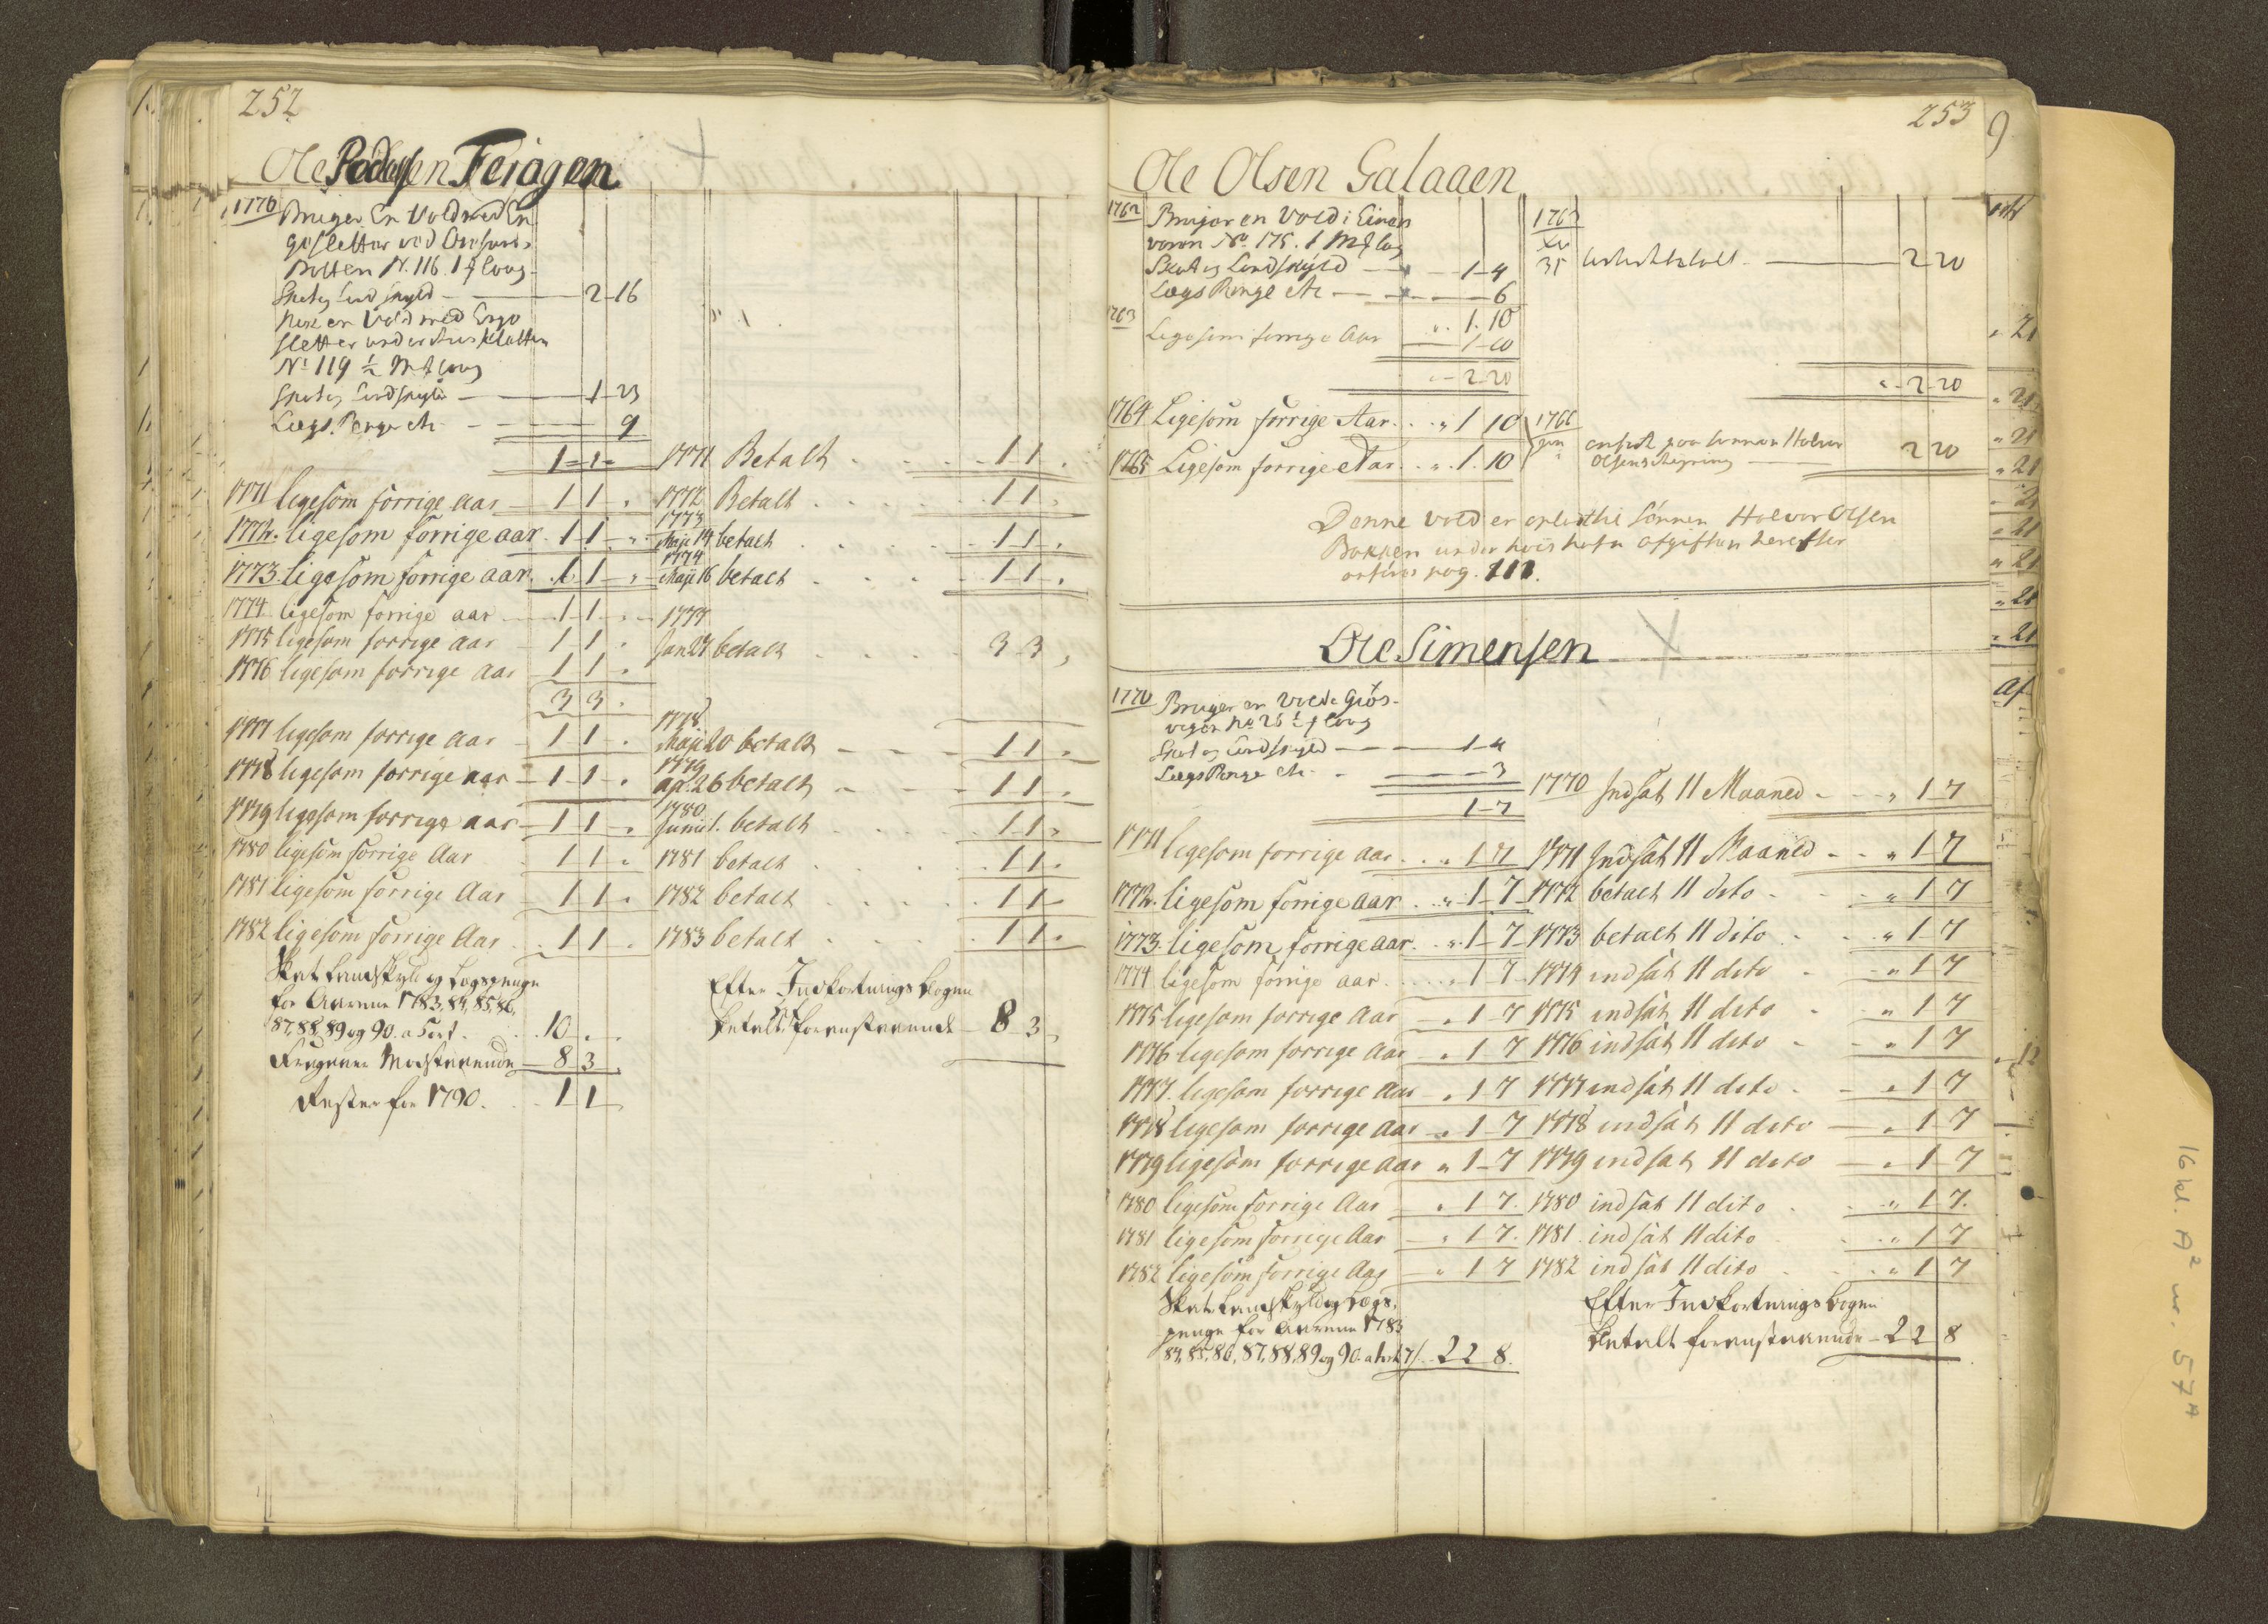 252
Ole Pedersen Feragen
1770 Bruger En Vold med En
ge sletter ved
Bolten N. 116. 1 f laug
Skat og Landskyld — 2 16
Item en Vold med Enge
sletter under
No 119 ½ M f laug
Skat og Landskyld — 1 23
Laugs Penge etc — 9
1 - 1 - 1771 Betalt . . 1 1 .
1771 ligesom forrige aar — 1 1 . 1772 Betalt . . 1 1 .
1772. ligesom forrige aar . 1 1 „ 1773 Maji 14 betalt . . 1 1 .
1773 ligesom forrige aar . 1 1 „ 1774 Maji 16 betalt . . 1 1 .
1774 ligesom forrige aar — 1 1 . 1777
1775 ligesom forrige aar — 1 1 . Jan 27 betalt . . 3 3 ,
1776 ligesom forrige aar — 1 1 .
3 3 .
1777 ligesom forrige aar — 1 1 . 1778 Maji 20 betalt — 1 1 .
1778 ligesom forrige aar — 1 1 . 1779 apl. 26 betalt — 1 1 .
1779 ligesom forrige aar — 1 1 . 1780 Junii 1. betalt . . 1 1 .
1780 ligesom forrige Aar 1 1 . 1781 betalt . . 1 1 .
1781 ligesom forrige Aar — 1 1 . 1782 betalt . . 1 1 -
1782 ligesom forrige Aar . . 1 1 . 1783 betalt . . 1 1 .
Skat Landskyld og Lagspenge
for Aarene 1783, 84, 85, 86,
87, 88, 89 og 90. a 5 ort . . . 10 . .
Fragaaer Modstaaende — 8 3 .
Rester for 1790. . . 1 1
Efter Indkortnings bogen
betalt foranstaaende — 8 3 ,
253
Ole Olsen Galaaen
1762 Bruger en Vold i Einer
voren No. 175. 1 M f laug
Skat og Landskyld — 1 - 4
Laugs Penge etc — 6
„ 1. 10
1763 Ligesom forrige Aar — 1 - 10
„ - 2 20
1762
31 betalt — 2 20
„ - 2 20
1764 Ligesom forrige Aar. . . „ 1 10
1765 Ligesom forrige Aar. . „ . 1. 10
1766 Jan anført paa sønnen Halvor
Olsens Regning — 2 20
Denne Vold er til Sønnen Halvor Olsen
Bakken under hvis hafn Afgiften herefter
anføres pag. 111.
Ole Simensen
1770 Bruger en Vold i Grøs-
vigen No 26 ½ f laug
Skat og Landskyld — 1 - 4
Laugs Penge etc. - — 3
1 - 7 1770 Indsat 11 Maaned - „ 1 7
1771 ligesom forrige aar . . „ 1 7 1771 Indsat 11 Maaned - - „ 1 7
1772. ligesom forrige aar . . „ 1 7 1772 betalt 11 dito - „ 1 7
1773 ligesom forrige aar . . „ 1 7 1773 betalt 11 dito - „ 1 7
1774 ligesom forrige aar . . . „ 1 7 1774 indsat 11 dito - „ 1 7
1775 ligesom forrige aar „ 1 7 1775 indsat 11 dito - „ 1 7
1776 ligesom forrige aar - „ 1 7 1776 indsat 11 dito - „ 1 7
1777. ligesom forrige aar - „ 1 7 1777 indsat 11 dito - „ 1 7
1778 ligesom forrige aar - „ 1 7 1778 indsat 11 dito - „ 1 7
1779 ligesom forrige aar „ 1 - 7 1779 indsat 11 dito — „ 1 7
1780 ligesom forrige Aar „ 1 7. 1780 indsat 11 dito . . „ 1 7.
1781 ligesom forrige Aar — „ 1 7. 1781 indsat 11 dito . . „ 1 7
1782 ligesom forrige Aar — „ 1 7 1782 indsat 11 dito . . „ 1 7
Skat Landskyld og Lags,
penge for Aarene 1783
84, 85, 86, 87, 88, 89 og 90. a 1 ort 7 s. 2 2 8.
Efter Indkortnings bogen
betalt foranstaaende - 2 2 8
9
„ 21
„ 21
„ 21
„ 21
„ 21
„ 21
„ 21
„ 21
„ 21
Af
„ 12
16 kl. A² nr. 57 A